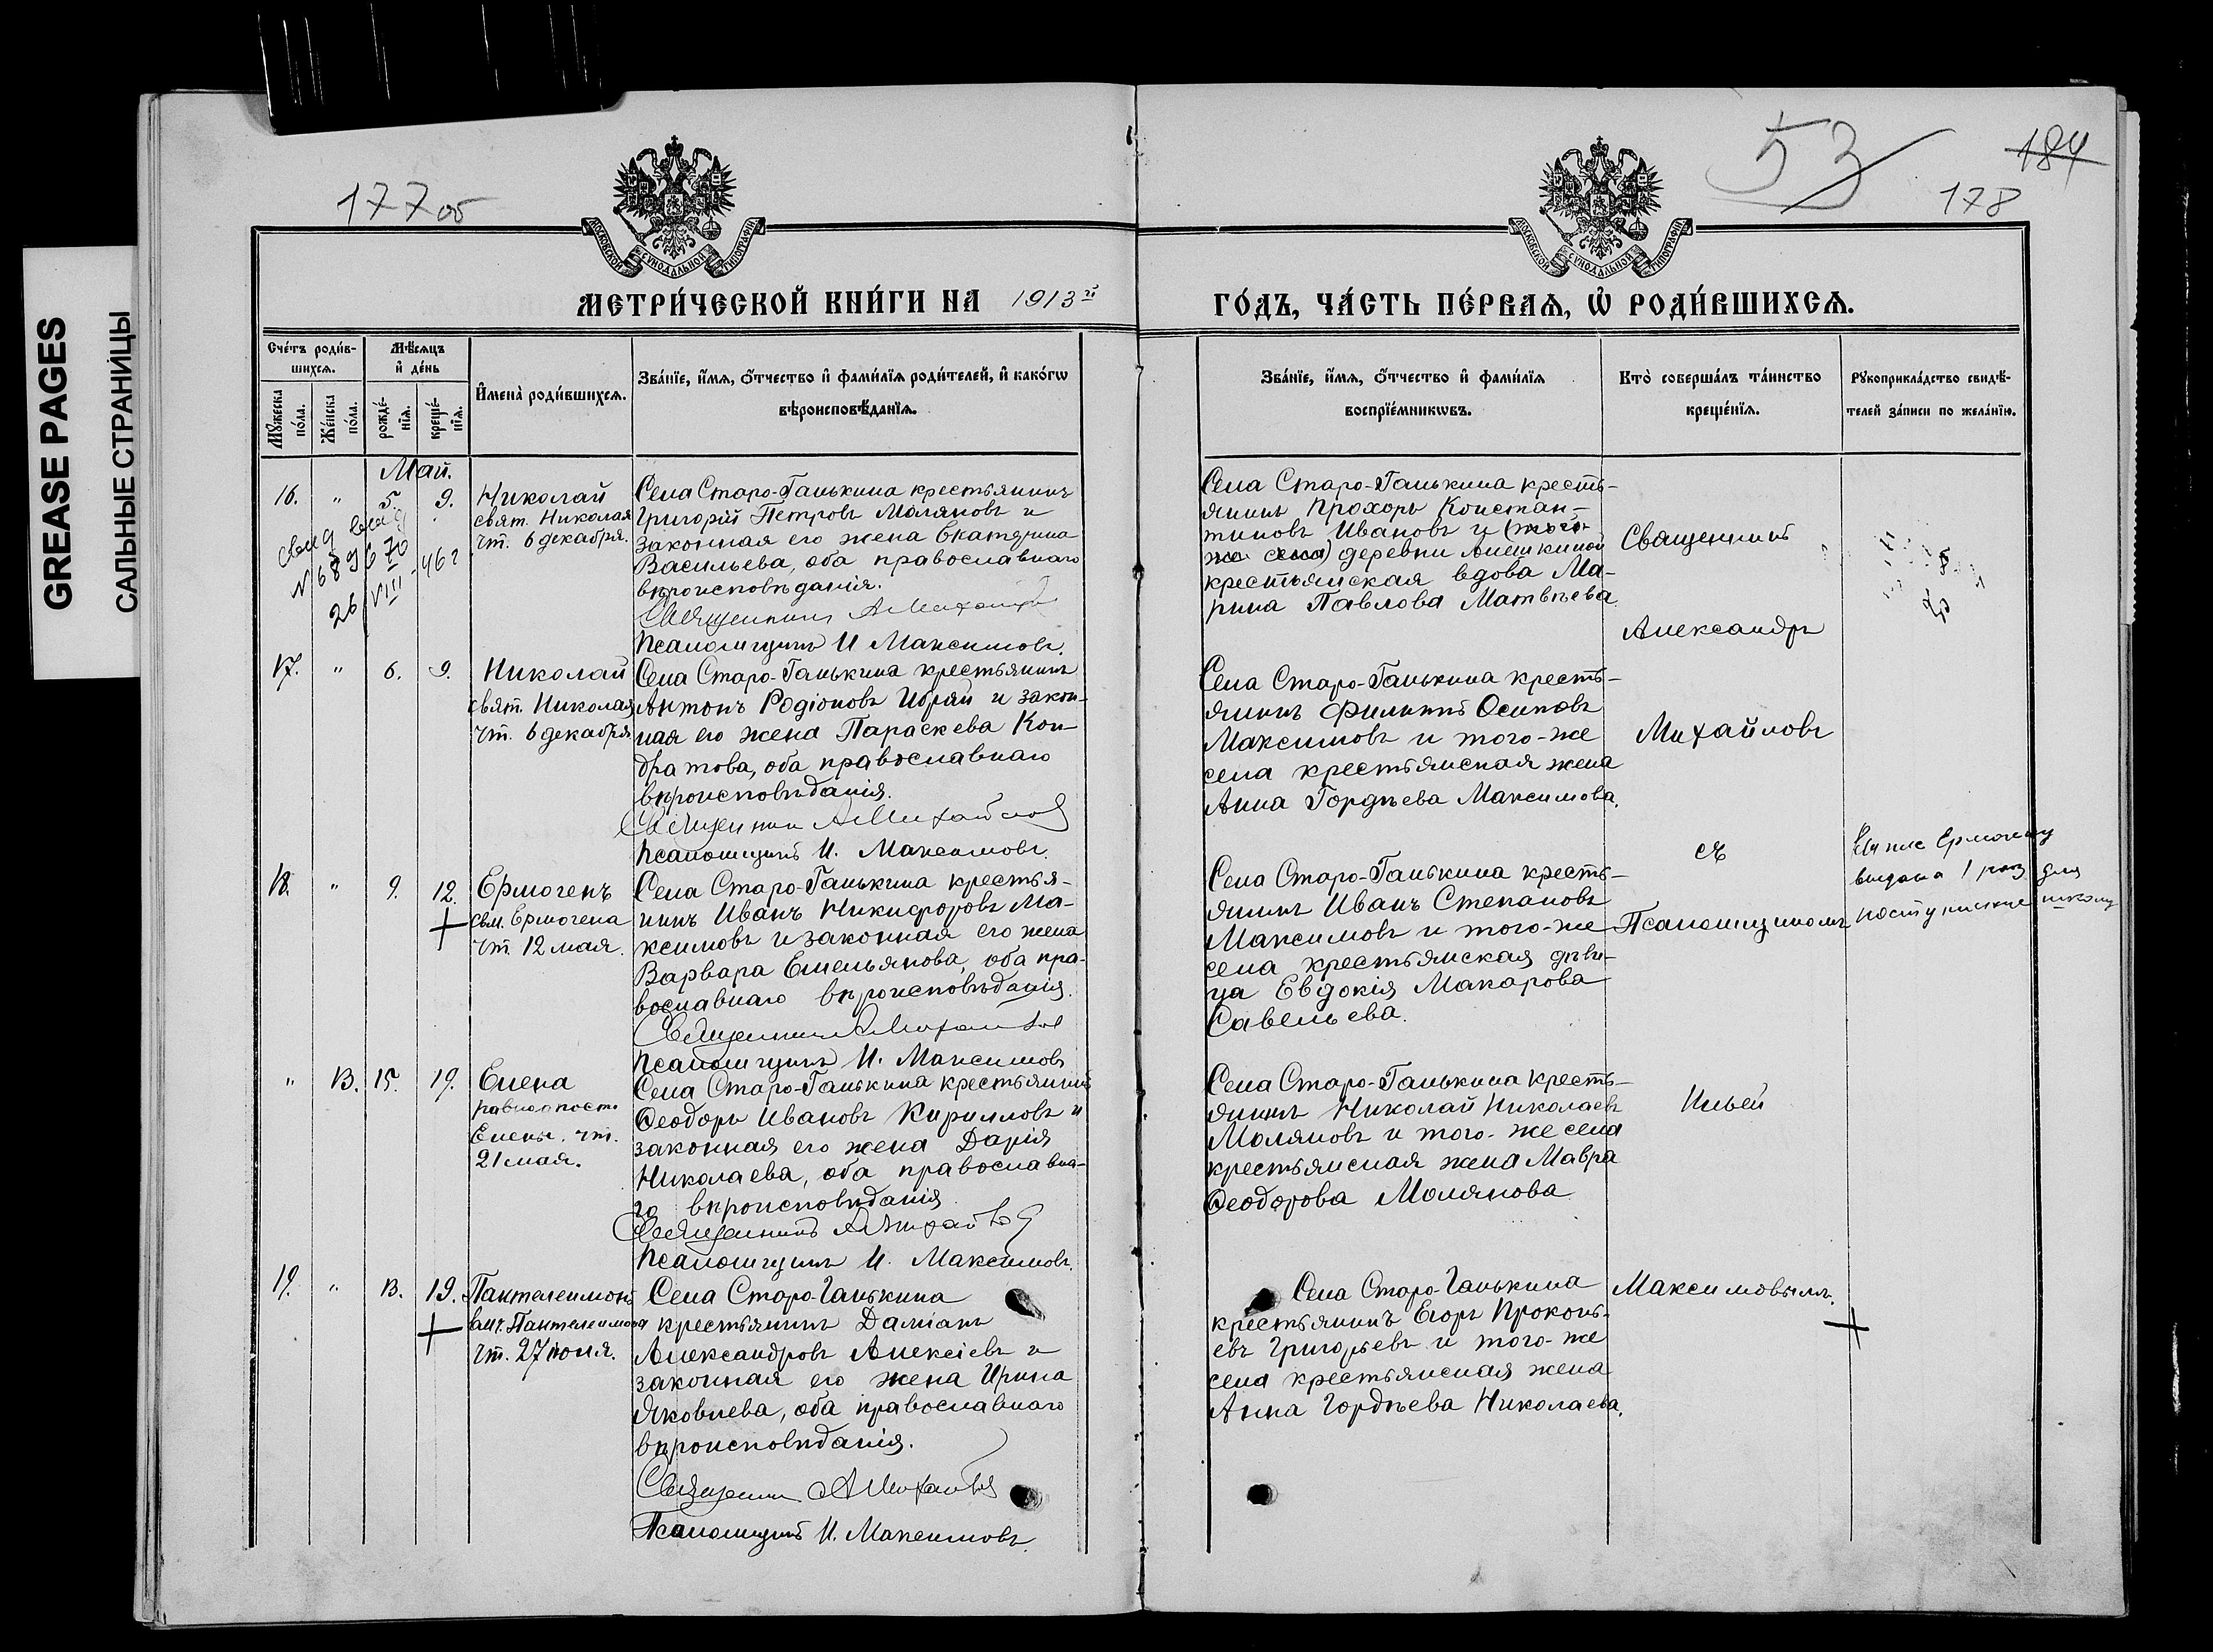 GREASE PAGES
САЛЬНЫЕ СТРАНИЦЫ
177об
МОСКОВСКОЙ СѴНОДАЛЬНОЙ ТИПОГРАФІИ
МЕТРИ́ЧЕСКОЙ КНИ́ГИ НА 1913й
Сче́тъ роди́в-
шихсѧ.
Мꙋжеска
по́ла.
Же́нска
по́ла.
Мѣ́сѧцъ
и҆ де́нь
рожде́-
нїѧ.
креще́-
нїѧ.
И҆мена̀ роди́вшихсѧ.
Зва́нїе, и҆́мѧ, ѻ҆́тчество и҆ фами́лїѧ роди́телей, и҆ како́гѡ
вѣроисповѣ́данїѧ.
Май.
16. " 5. 9. Николай
свят. Николая
чт. 6 декабря.
Села Старо-Ганькина крестьянинъ
Григорій Петровъ Моляновъ и
законная его жена Екатерина
Васильева, оба православнаго
вѣроисповѣданія.
Священникъ А Михайловъ
Псаломщикъ И Максимовъ.
свид
N 689670
26/VIII-46г
17. " 6. 9. Николай
свят. Николая
чт. 6 декабря
Села Старо-Ганькина крестьянинъ
Антонъ Родіоновъ и закон-
ная его жена Параскева Кон-
дратова, оба православнаго
вѣроисповѣданія.
Священник А Михайлов
Псаломщикъ И. Максимовъ.
18. " 9. 12. Ермогенъ
свм. Ермогена
чт. 12 мая.
Села Старо-Ганькина крестья-
нинъ Иванъ Никифоровъ Ма-
ксимовъ и законная его жена
Варвара Емельянова, оба пра-
вославнаго вѣроисповѣданія.
Священникъ А Михайлов
Псаломщикъ И. Максимовъ
" 13. 15. 19. Елена
равноапост.
Елены. чт.
21 мая.
Села Старо-Ганькина крестьянинъ
Ѳеодоръ Ивановъ Кирилловъ и
законная его жена Дарія
Николаева, оба православна-
го вѣроисповѣданія
Священникъ А Михайлов
Псаломщикъ И. Максимовъ.
19. " 13. 19. Пантелеимонъ
вмч. Пантелеимона
чт. 27 іюля.
Села Старо-Ганькина
крестьянинъ Даміанъ
Александровъ Алексіевъ и
законная его жена Ирина
Яковлева, оба православнаго
вѣроисповѣданія.
Священник А Михайлов
Псаломщикъ И. Максимовъ.
53
184
178
МОСКОВСКОЙ СѴНОДАЛЬНОЙ ТИПОГРАФІИ
ГО́ДЪ, ЧА́СТЬ ПЕ́РВАѦ, Ѡ҆ РОДИ́ВШИХСѦ.
Зва́нїе, и҆́мѧ, ѻ҆́тчество и҆ фами́лїѧ
воспрїе́мникѡвъ.
Кто̀ соверша́лъ та́инство
креще́нїѧ.
Рꙋкоприкла́дство свидѣ́-
телей за́писи по жела́нїю.
Села Старо-Ганькина кресть-
янинъ Прохоръ Констан-
тиновъ Ивановъ и (того-
же села) деревни Алешкиной
крестьянская вдова Ма-
рина Павлова Матвѣева.
Села Старо-Ганькина кресть-
янинъ Филиппъ Осиповъ
Максимовъ и того-же
села крестьянская жена
Анна Гордѣева Максимова.
Села Старо-Ганькина кресть-
янинъ Иванъ Степановъ
Максимовъ и того-же
села крестьянская дѣви-
ца Евдокія Макарова
Савельева.
Села Старо-Ганькина кресть-
янинъ Николай Николаевъ
Моляновъ и того-же села
крестьянская жена Мавра
Ѳеодорова Молянова
Села Старо-Ганькина
крестьянинъ Егоръ Прокопь-
евъ Григорьевъ и того-же
села крестьянская жена
Анна Гордѣева Николаева.
Священникъ
Александръ
Михайловъ
съ
Псаломщикомъ
Ильей
Максимовымъ.
Ермогену
выдана 1 раз для
поступления школу